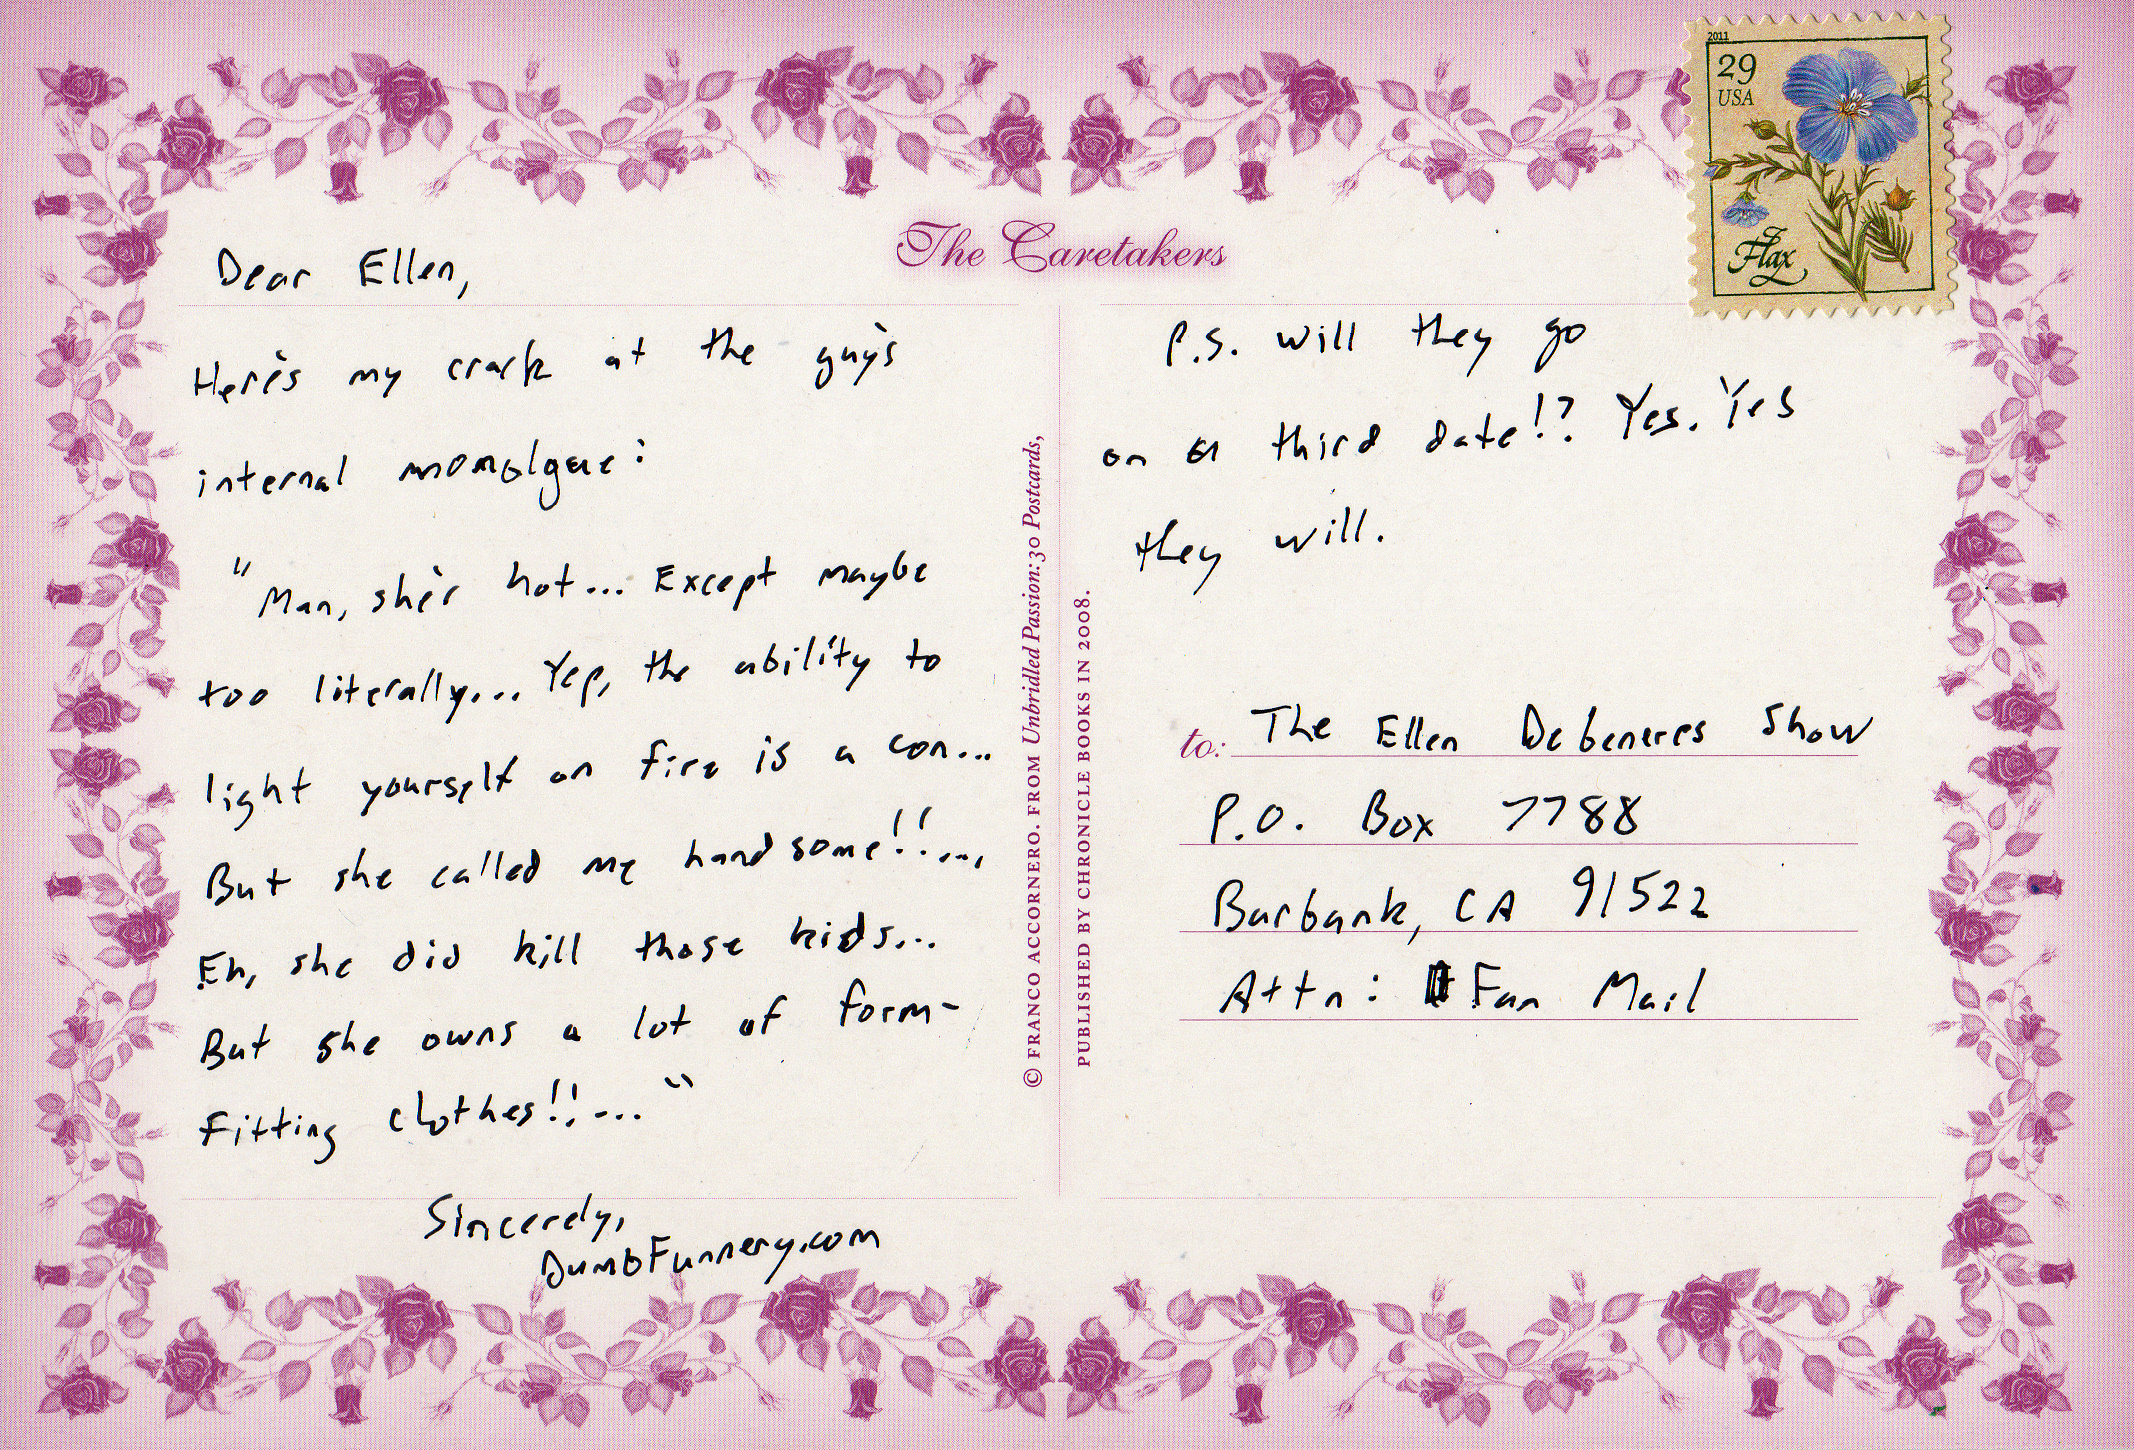 The Caretakers
2011
29
USA
Flax
Dear Ellen,
Here's my crack at the guy's
internal monolgue:
"Man, she's hot... Except maybe
too literally... Yep, the ability to
light yourself on fire is a con...
But she called me handsome!!...
Eh, she did kill those kids...
But she owns a lot of form-
fitting clothes!!..."
Sincerely,
DumbFunnery.com
© FRANCO ACCORNERO. FROM Unbridled Passion: 30 Postcards,
PUBLISHED BY CHRONICLE BOOKS IN 2008.
P.S. Will they go
on a third date!? Yes. Yes
they will.
to: The Ellen Debeneres Show
P.O. Box 7788
Burbank, CA 91522
Attn: Fan Mail